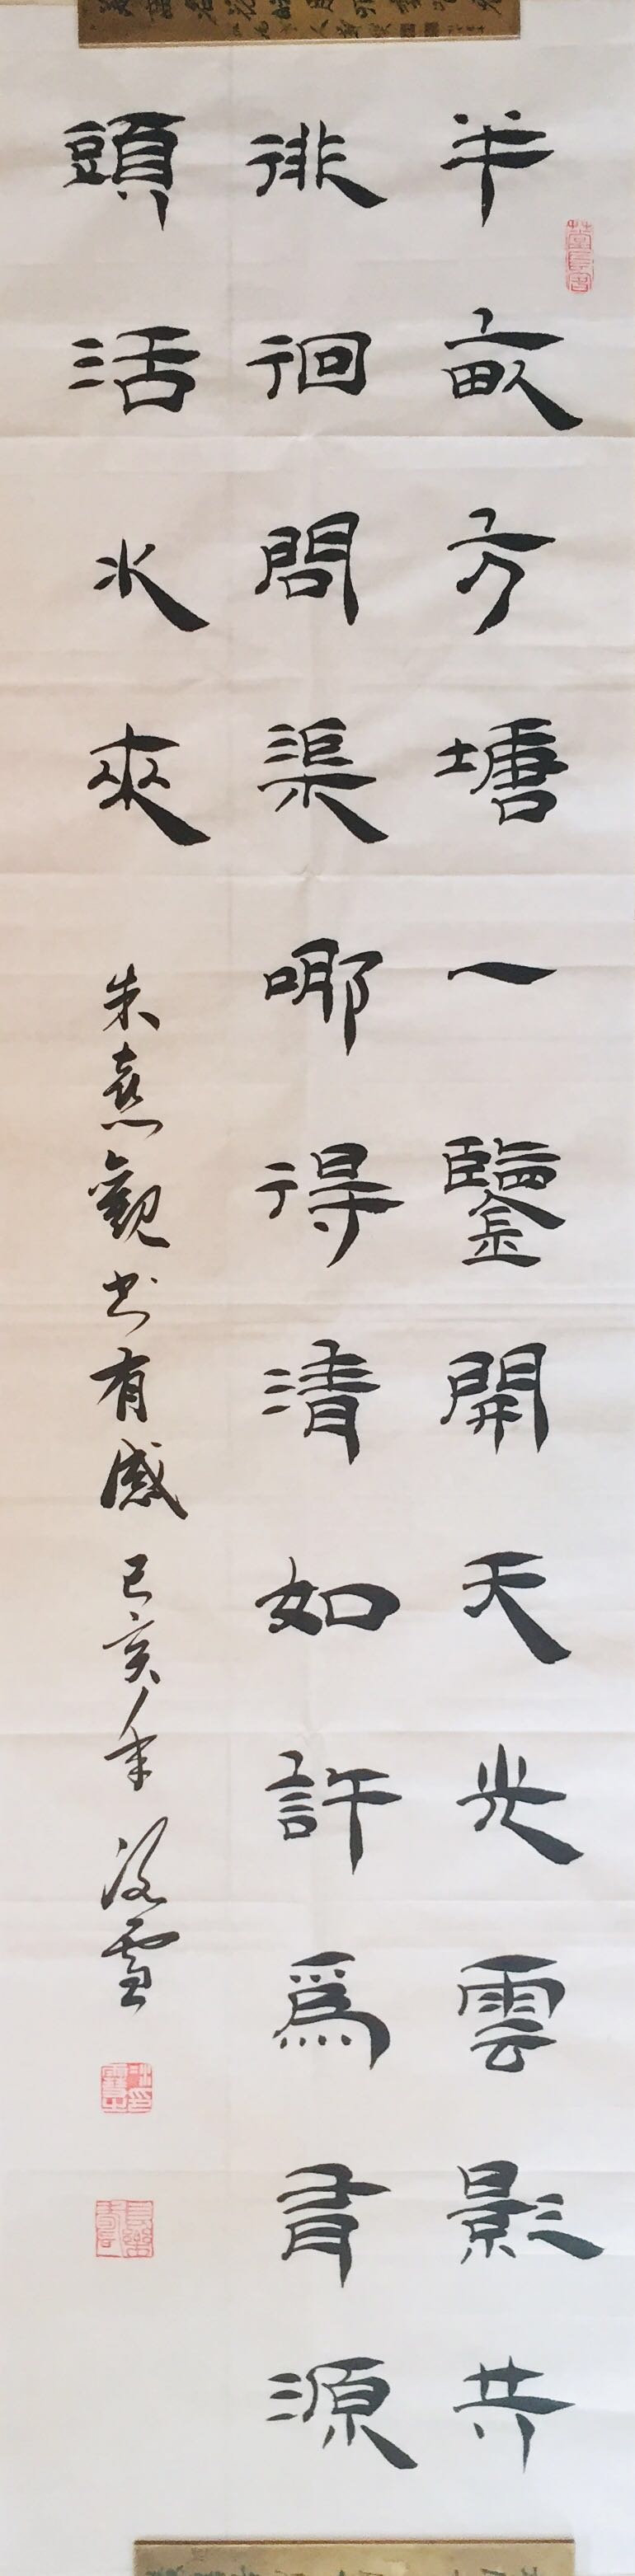 半畝方塘一鑒開天光雲影共
徘徊問渠哪得清如許為有源
頭活水來
朱熹觀書有感 己亥年 凌雪